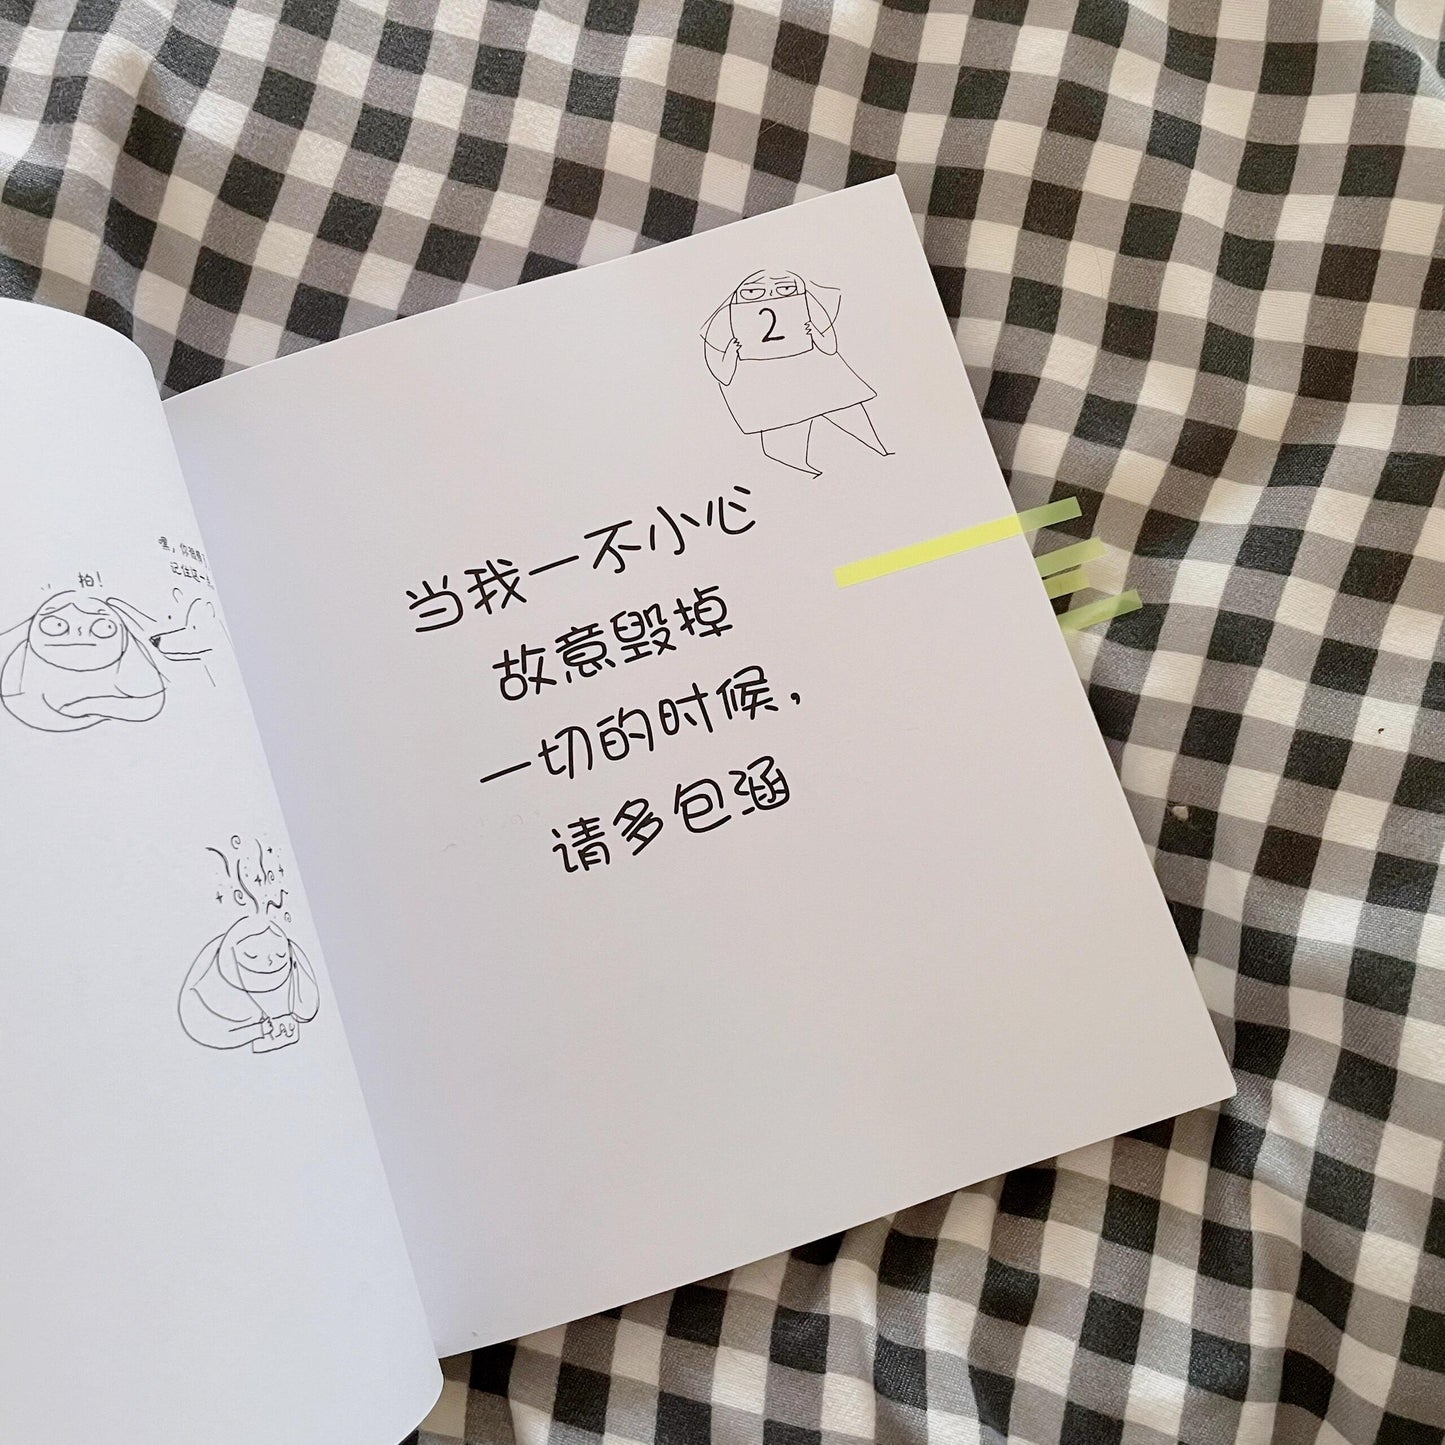 拍！
记住这一
2
当我一不小心
故意毁掉
一切的时候，
请多包涵